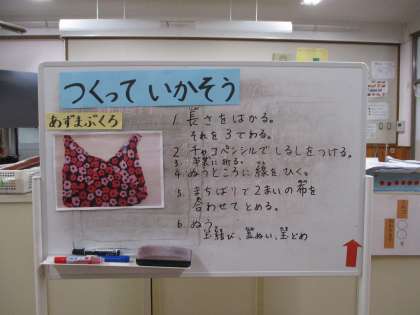 つくって いかそう
あずまぶくろ
1. 長さをはかる。
それを3でわる。
2. チャコペンシルでしるしをつける。
3. 半算に折る。
4. ぬうところに線をひく。
5. まちばりで2まいの布を
合わせてとめる。
6. ぬう。
玉結び、並ぬい、玉どめ